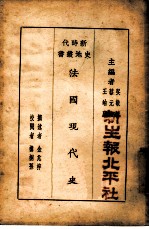 新時代
史地叢書
主編者
吳敬恆
蔡元培
王雲五
新生報北平社
法國現代史
編述者 金兆梓
校閱者